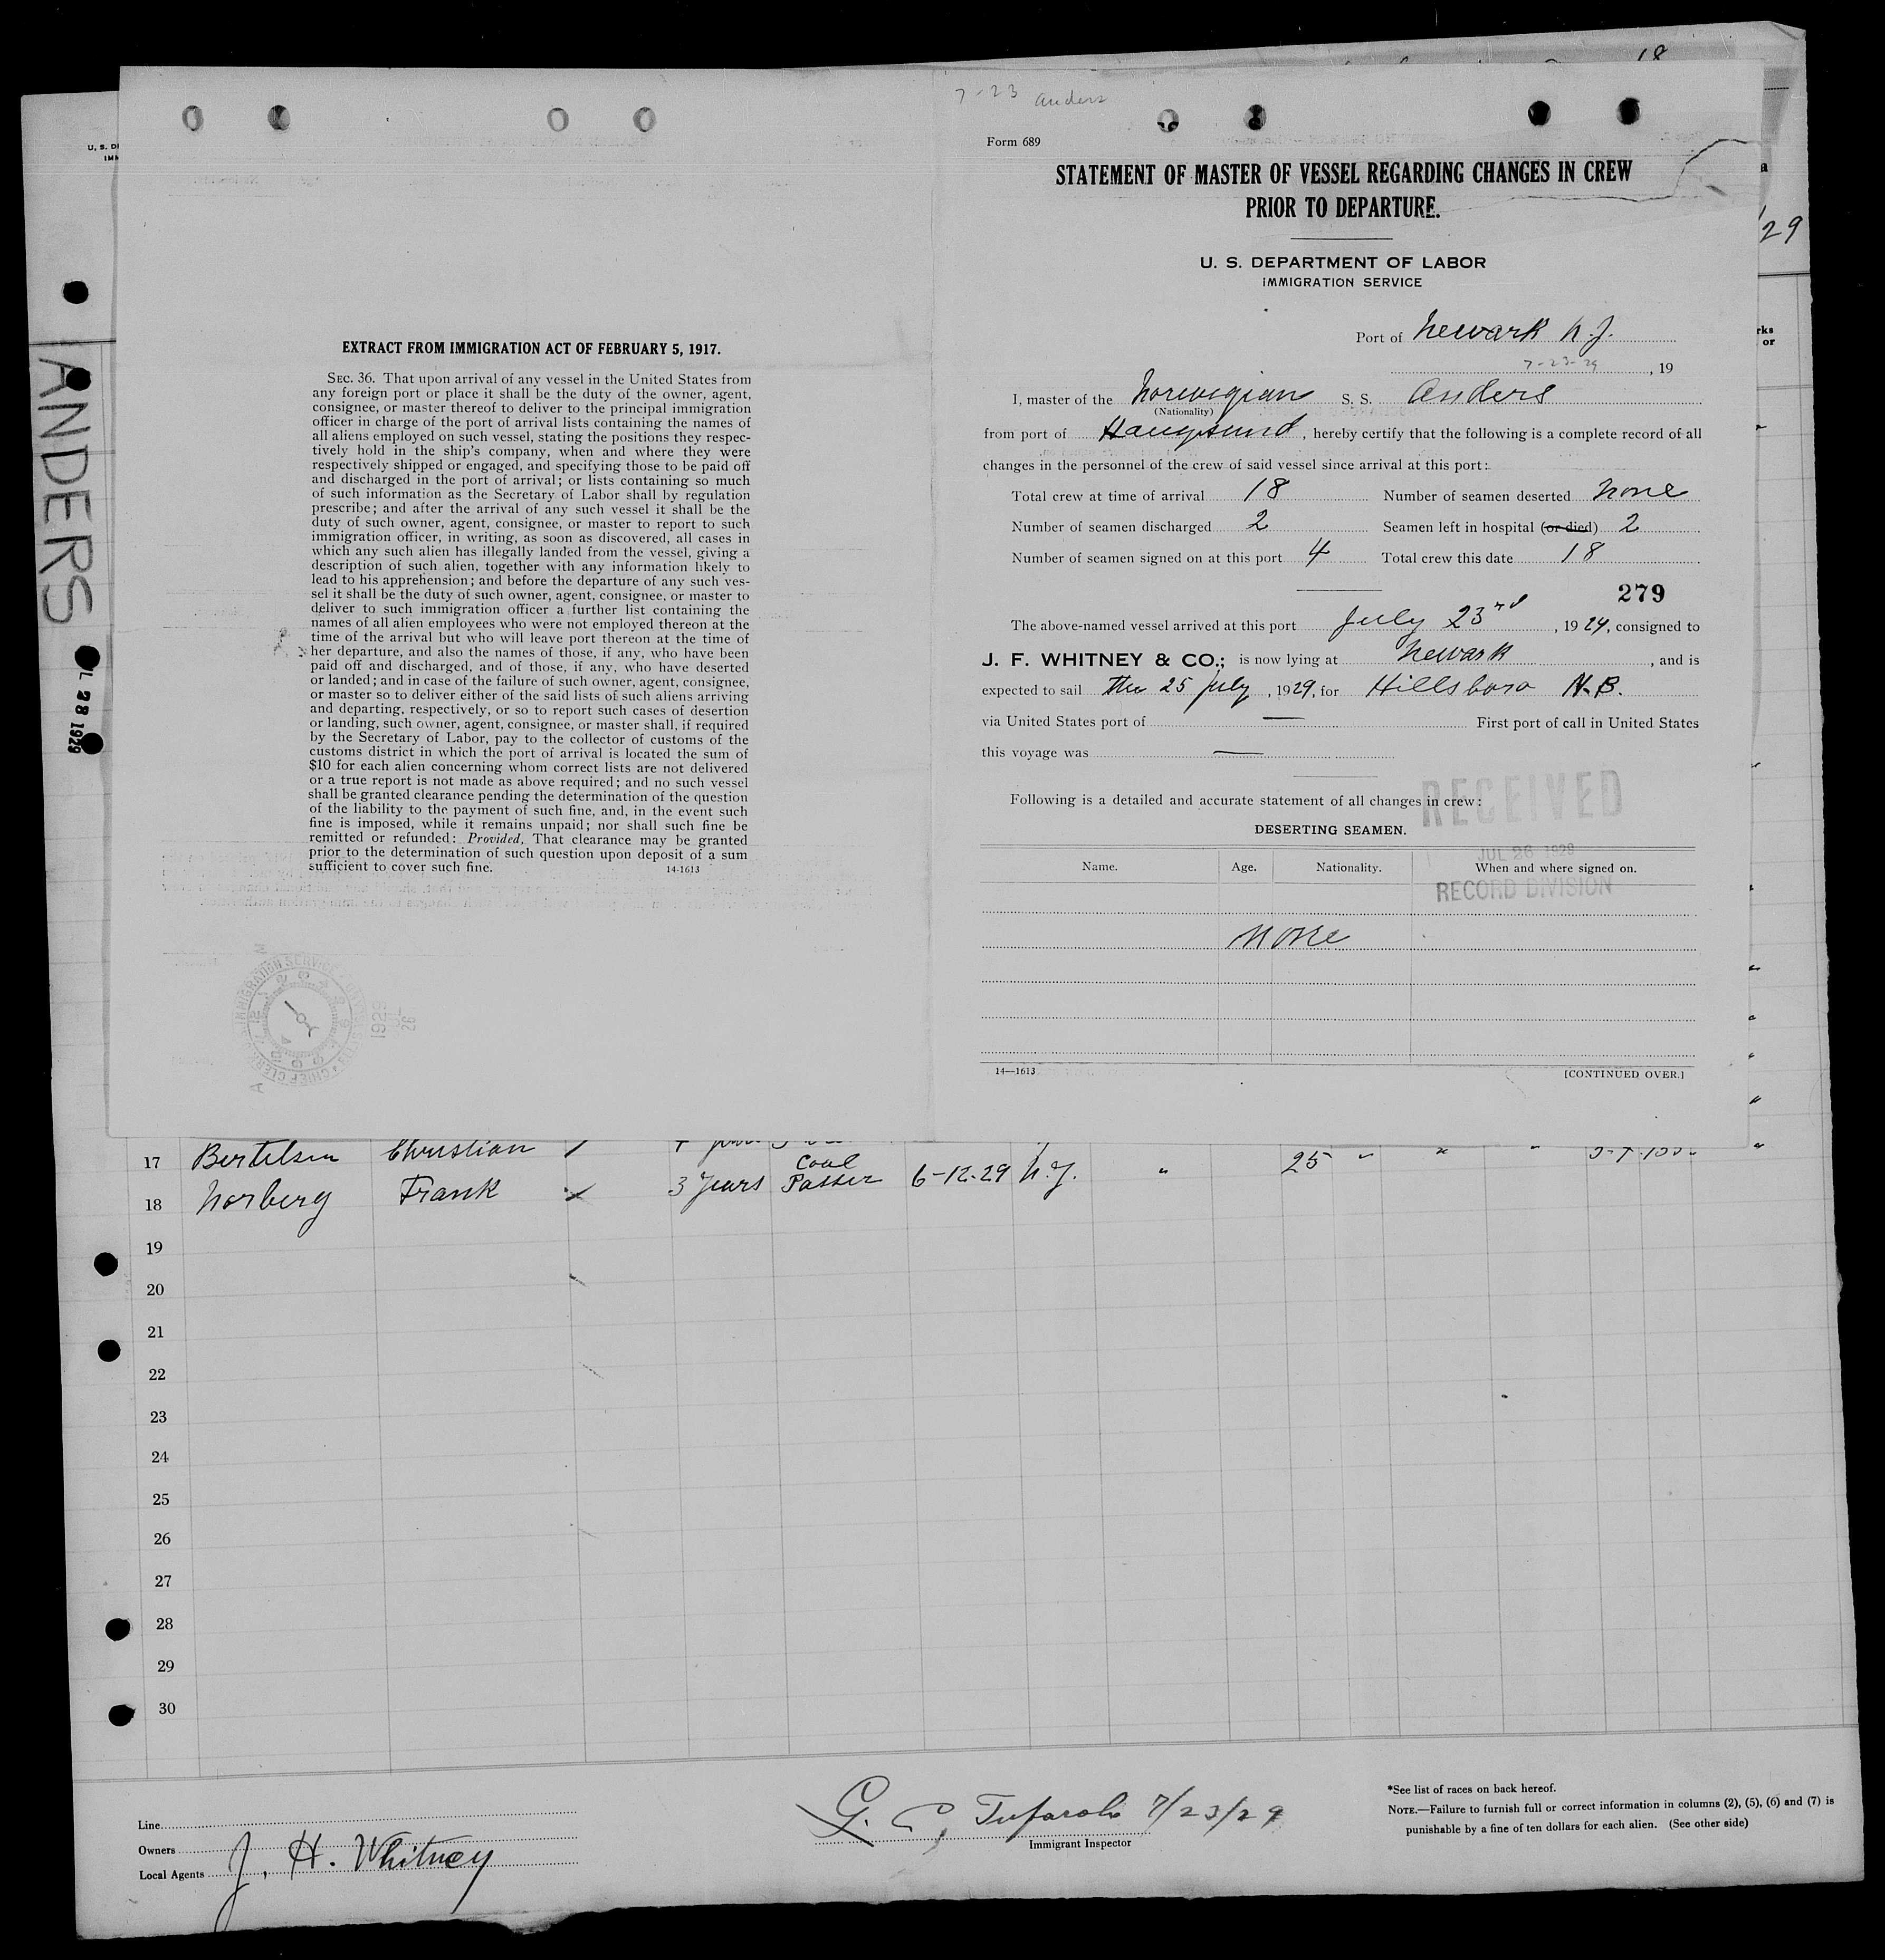 18
7-23 Anders
Form 689
STATEMENT OF MASTER OF VESSEL REGARDING CHANGES IN CREW
PRIOR TO DEPARTURE.
U. S. DEPARTMENT OF LABOR
IMMIGRATION SERVICE
Port of Newark N.J.
7-23-29, 19
I, master of the Norwegian S. S. Anders
(Nationality)
from port of Haugesund, hereby certify that the following is a complete record of all
changes in the personnel of the crew of said vessel since arrival at this port:
Total crew at time of arrival 18 Number of seamen deserted None
Number of seamen discharged 2 Seamen left in hospital (or died) 2
Number of seamen signed on at this port 4 Total crew this date 18
279
The above-named vessel arrived at this port July 23rd, 1929, consigned to
J. F. WHITNEY & CO.; is now lying at Newark, and is
expected to sail The 25 July, 1929, for Hillsboro N.B.
via United States port of — First port of call in United States
this voyage was —
Following is a detailed and accurate statement of all changes in crew:
RECEIVED
JUL 26 1929
RECORD DIVISION
DESERTING SEAMEN.
Name. Age. Nationality. When and where signed on.
None
14—1613 [CONTINUED OVER.]
EXTRACT FROM IMMIGRATION ACT OF FEBRUARY 5, 1917.
SEC. 36. That upon arrival of any vessel in the United States from
any foreign port or place it shall be the duty of the owner, agent,
consignee, or master thereof to deliver to the principal immigration
officer in charge of the port of arrival lists containing the names of
all aliens employed on such vessel, stating the positions they respec-
tively hold in the ship's company, when and where they were
respectively shipped or engaged, and specifying those to be paid off
and discharged in the port of arrival; or lists containing so much
of such information as the Secretary of Labor shall by regulation
prescribe; and after the arrival of any such vessel it shall be the
duty of such owner, agent, consignee, or master to report to such
immigration officer, in writing, as soon as discovered, all cases in
which any such alien has illegally landed from the vessel, giving a
description of such alien, together with any information likely to
lead to his apprehension; and before the departure of any such ves-
sel it shall be the duty of such owner, agent, consignee, or master to
deliver to such immigration officer a further list containing the
names of all alien employees who were not employed thereon at the
time of the arrival but who will leave port thereon at the time of
her departure, and also the names of those, if any, who have been
paid off and discharged, and of those, if any, who have deserted
or landed; and in case of the failure of such owner, agent, consignee,
or master so to deliver either of the said lists of such aliens arriving
and departing, respectively, or so to report such cases of desertion
or landing, such owner, agent, consignee, or master shall, if required
by the Secretary of Labor, pay to the collector of customs of the
customs district in which the port of arrival is located the sum of
$10 for each alien concerning whom correct lists are not delivered
or a true report is not made as above required; and no such vessel
shall be granted clearance pending the determination of the question
of the liability to the payment of such fine, and, in the event such
fine is imposed, while it remains unpaid; nor shall such fine be
remitted or refunded: Provided, That clearance may be granted
prior to the determination of such question upon deposit of a sum
sufficient to cover such fine. 14-1613
IMMIGRATION SERVICE
CHIEF CLERK
1929
JUL
26
ANDERS
28 1929
17 Bertelsen Christian 25 " " "
18 Norberg Frank 3 years Coal Passer 6-12-29 N.Y. "
19
20
21
22
23
24
25
26
27
28
29
30
Line
Owners
Local Agents J. H. Whitney
G. C. 7/23/29
Immigrant Inspector
*See list of races on back hereof.
NOTE.—Failure to furnish full or correct information in columns (2), (5), (6) and (7) is
punishable by a fine of ten dollars for each alien. (See other side)